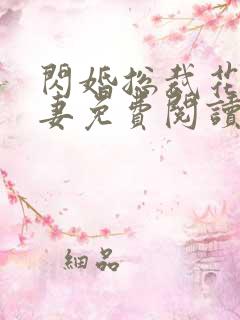 閃婚总裁花
妻免費閱讀
細品